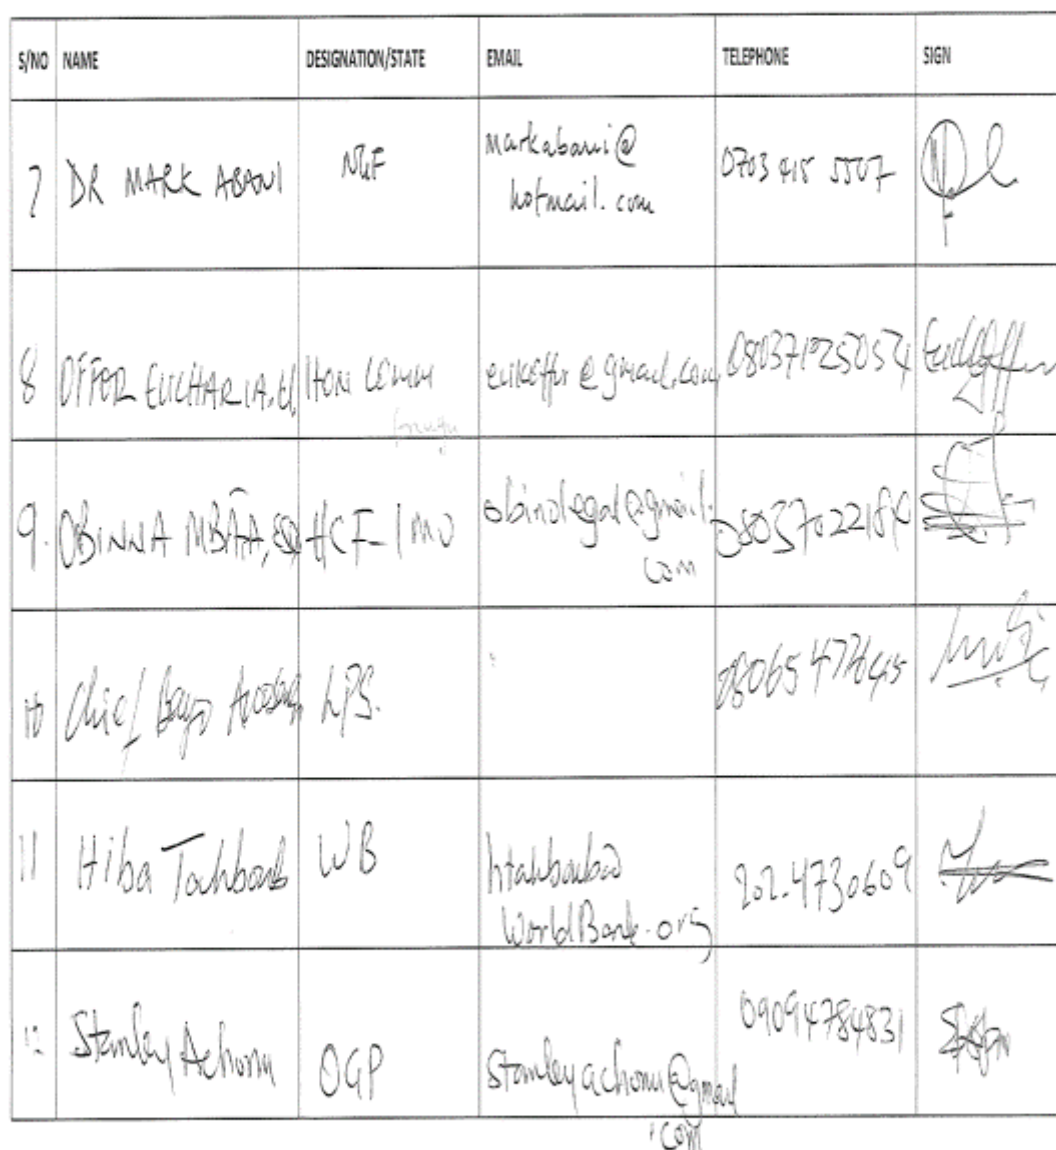 S/NO NAME DESIGNATION/STATE EMAIL TELEPHONE SIGN
7 DR MARK ABANI NGF markabani@
hotmail.com 0703 415 5507
8 OFFOR EUCHARIA HON COMM eukoffor@gmail.com
Enugu
9. OBINNA MBATA, ESQ HCF-IMO obinolegal@gmail.
com
10 Chief Bayo LPS.
11 Hiba Tahboub WB htahboub@
WorldBank.org 202-4730609
12 Stanley Achonu OGP Stanleyachonu@gmail
.com 09094784831